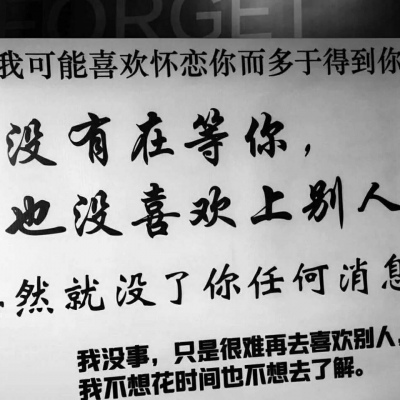 FORGET
我可能喜欢怀恋你而多于得到你
没有在等你,
也没喜欢上别人
然就没了你任何消息
我没事,只是很难再去喜欢别人,
我不想花时间也不想去了解。